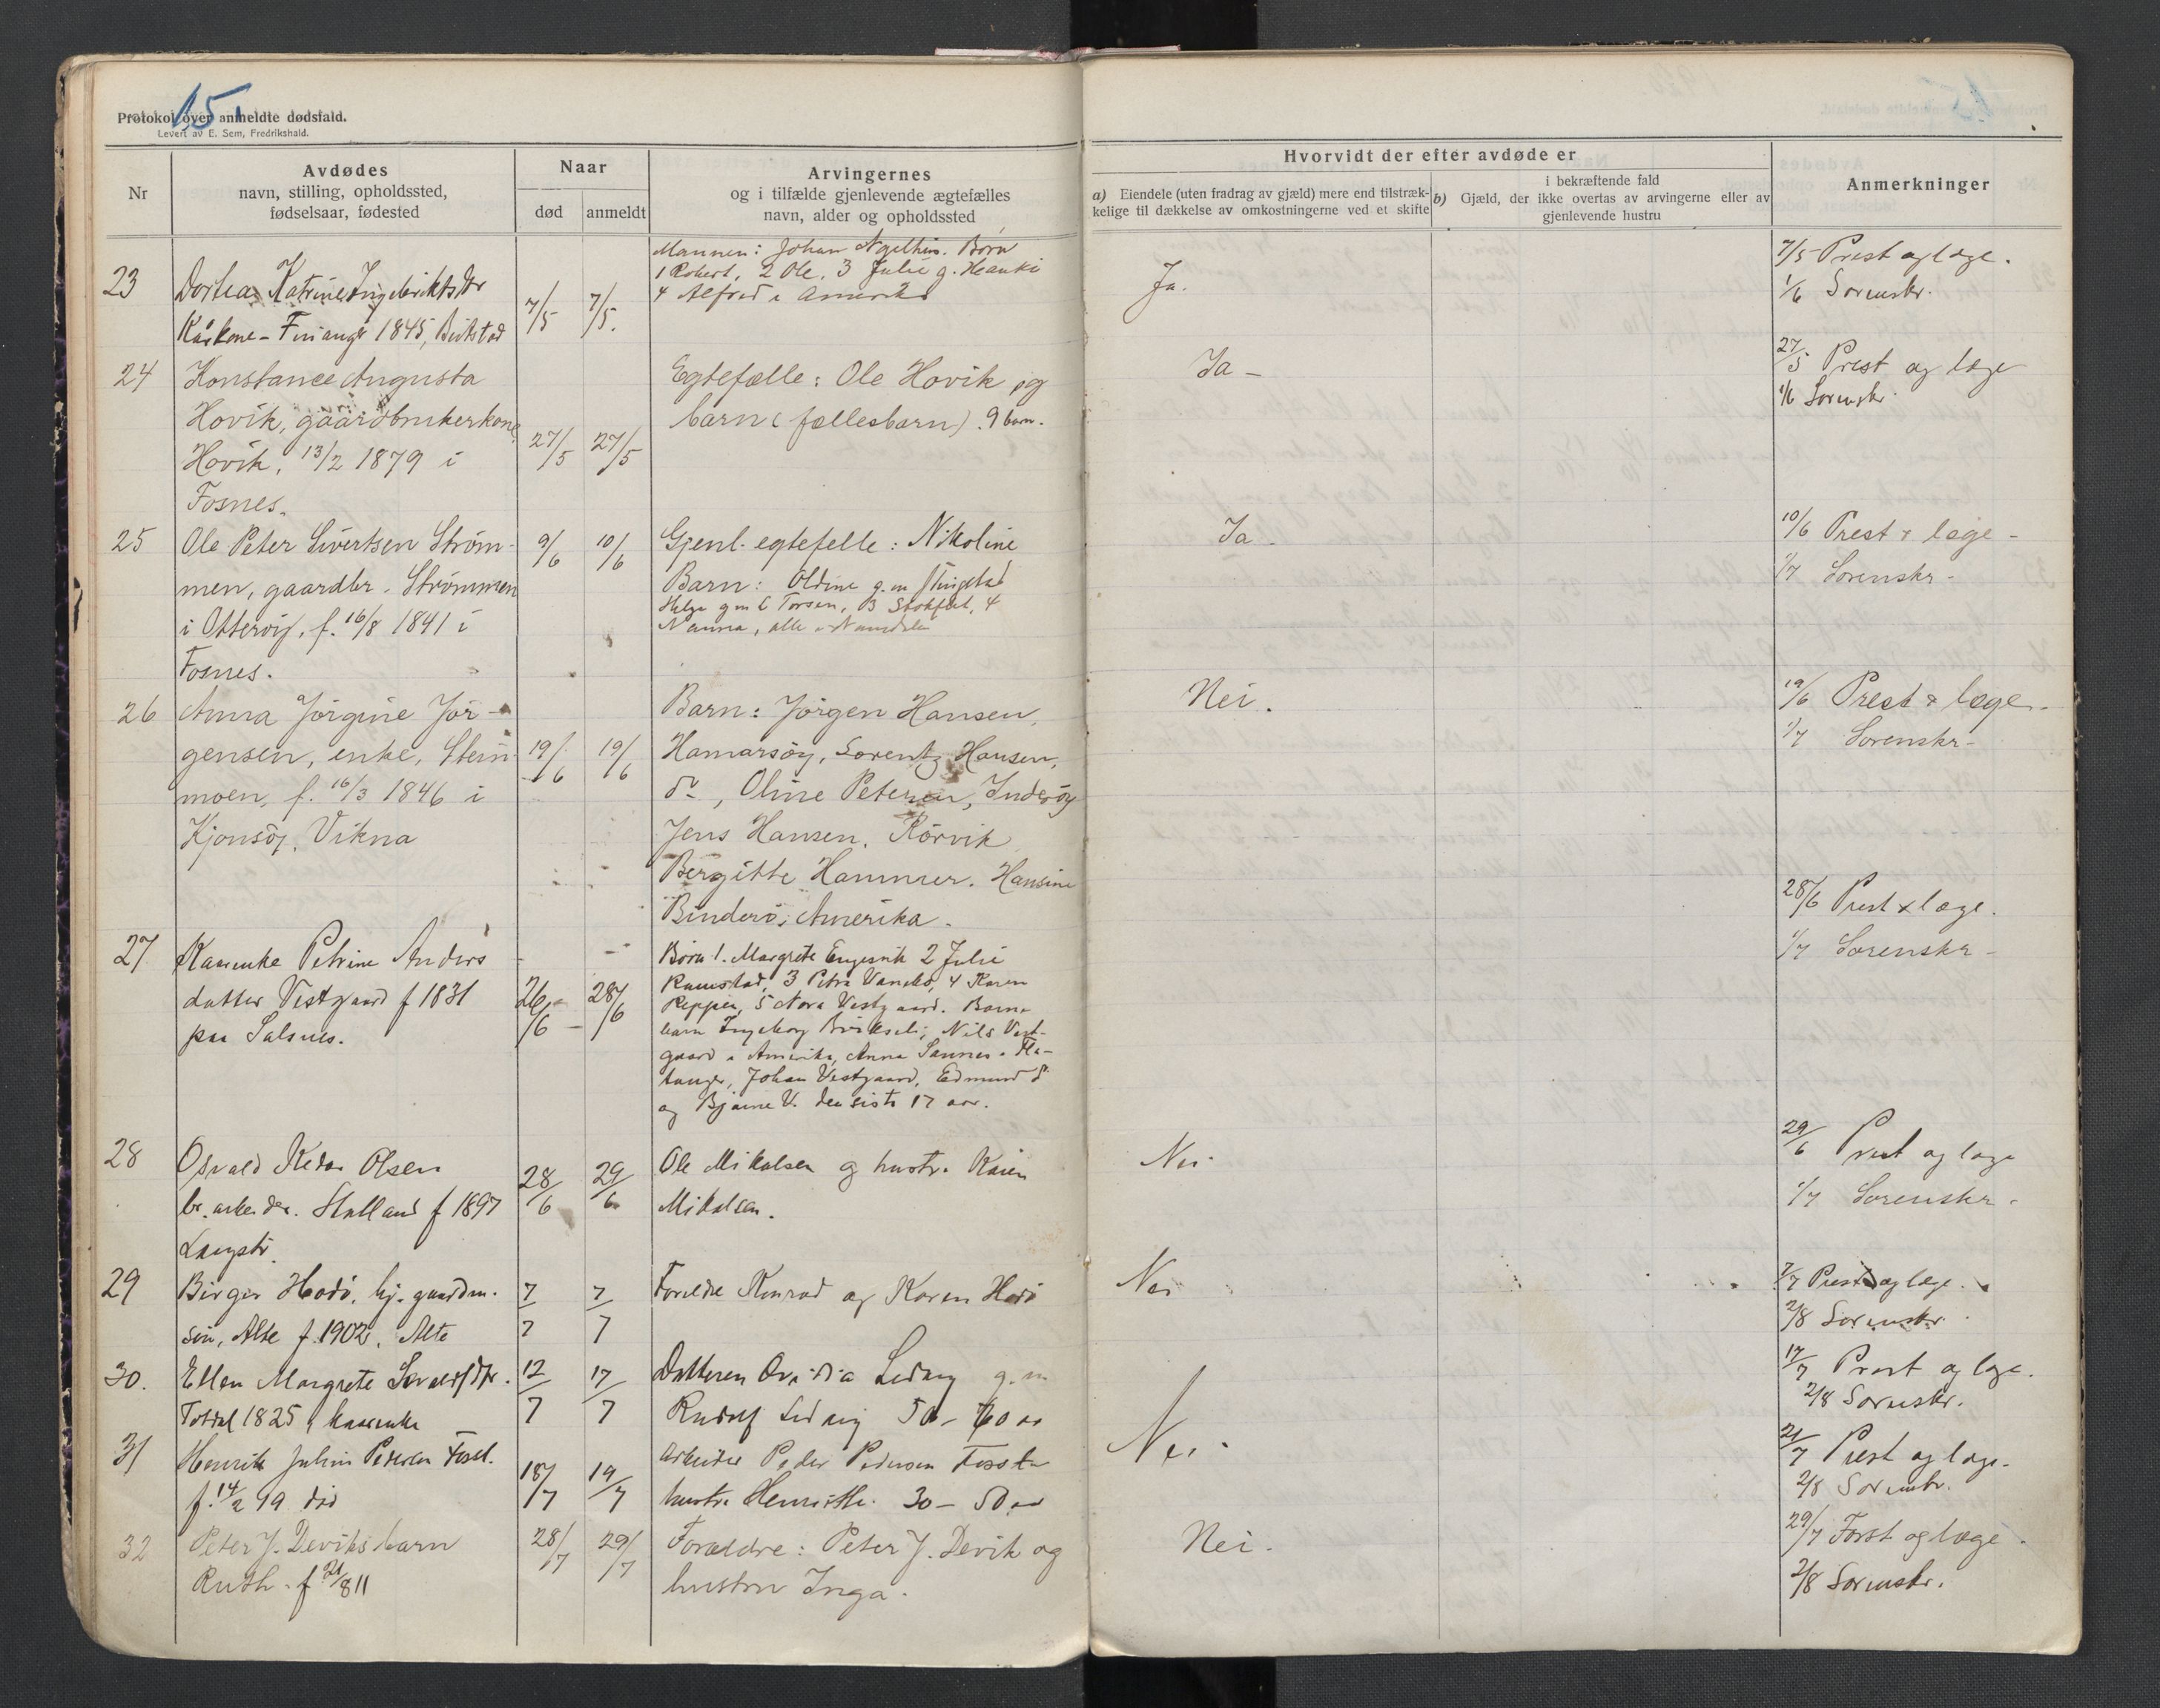 15.
Protokol over anmeldte dødsfald.
Levert av E. Sem, Fredrikshald.
Nr
Avdødes
navn, stilling, opholdssted,
fødselsaar, fødested
Naar
død
anmeldt
Arvingernes
og i tilfælde gjenlevende ægtefælles
navn, alder og opholdssted
Hvorvidt der efter avdøde er
a) Eiendele (uten fradrag av gjæld) mere end tilstræk-
kelige til dækkelse av omkostningerne ved et skifte
i bekræftende fald
b) Gjæld, der ikke overtas av arvingerne eller av
gjenlevende hustru
Anmerkninger
23
Dorhea Katrine Ingebriktsdtr
Kårkone - 1845,
7/5
7/5.
Mannen: Johan Børn
1 Robert, 2 Ole, 3 Julie g. Hauki
4 Alfred i Amerika
Ja.
7/5 Prest og læge.
1/6 Sorenskr.
24
Konstance Augusta
Hovik, gaardbrukerkone
Hovik, 13/2 1879 i
Fosnes.
27/5
27/5
Egtefælle: Ole Hovik og
barn (fællesbarn). 9 barn.
Ja -
27/5 Prest og læge
1/6 Sorenskr.
25
Ole Peter Sivertsen Strøm-
men, gaardbr. Strømmen
i Otterøy, f. 16/8 1841 i
Fosnes.
9/6
10/6
Gjenl. egtefelle: Nikoline
Barn: Oldine g.m Tingstad
Helga g m C Torsen, 3 4
Nanna, alle i Namdalen
Ja -
10/6 Prest & læge -
1/7 Sorenskr -
26
Anna Jørgine Jør-
gensen, enke, Stein-
moen, f. 16/3 1846 i
Kjonsøy, Vikna
19/6
19/6
Barn: Jørgen Hansen,
Hamarsøy, Lorentz Hansen,
do, Oline Petersen, Inderøy
Jens Hansen, Rørvik
Bergitte Hammer. Hansine
Binderø, Amerika.
Nei.
19/6 Prest & læge -
1/7 Sorenskr -
27
Kaarenke Petrine Anders
datter Vestgaard f 1831
paa Salsnes.
26/6 -
28/6
Børn 1. Margrete Engesvik 2 Julie
Ramstad, 3 Petra 4 Karen
5 Nora Vestgaard. Barne
barn Ingeborg Nils Vest-
gaard i Amerika, Anna Sannes i Fla-
tanger, Johan Vestgaard, Edmund do
og Bjarne V. den siste 17 aar.
28/6 Prest & læge.
1/7 Sorenskr -
28
Osvald Kedar Olsen
br. arbeider. f 1897
28/6
29/6
Ole Mikalsen og hustru Karen
Mikalsen.
Nei
29/6 Prest og læge
1/7 Sorenskr -
29
Birger Hodø, hj. gaardm.
søn, Alte f. 1902. Alte
7/7
7/7
Foreldre Konrad og Karen Hodø
Nei
7/7 Prest og læge.
2/8 Sorenskr.
30.
Ellen Margrete
Totdal 1825, kaarenke
12/7
17/7
Datteren Ovidia g. m
Rudolf 50 - 60 aar
17/7 Prest og læge.
2/8 Sorenskr.
31
Henrik Julius Pedersen Fosst.
f. 14/2 99
18/7
19/7
Arbeider Peder Pedersen
hustru Henriette. 30 - 50 aar
Nei.
21/7 Prest og læge.
2/8 Sorenskr.
32
Peter J. Deviks barn
Ruth - f 21/8 11
28/7
29/7
Forældre: Peter J. Devik og
hustru Inga.
Nei.
29/7 Forst og læge.
2/8 Sorenskr.